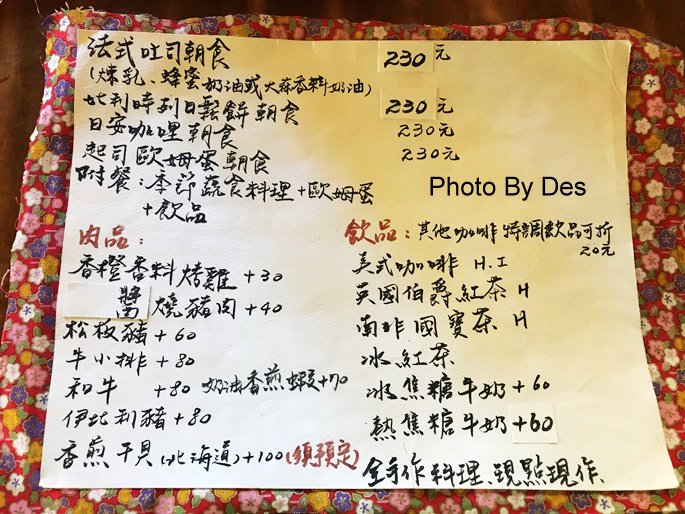 法式吐司朝食 230元
(煉乳、蜂蜜奶油或大蒜香料奶油)
比利時列日鬆餅朝食 230元
日安咖哩朝食 230元
起司歐姆蛋朝食 230元
附餐:季節蔬食料理+歐姆蛋
+飲品
Photo By Des
肉品:
香橙香料烤雞+30
醬燒豬肉+40
松板豬+60
牛小排+80
和牛 +80 奶油香煎蝦+70
伊比利豬+80
香煎干貝(北海道)+100(須預定)
飲品:其他咖啡特調飲品可折
20元
美式咖啡 H.I
英國伯爵紅茶 H
南非國寶茶 H
冰紅茶
冰焦糖牛奶+60
熱焦糖牛奶+60
全手作料理、現點現作、